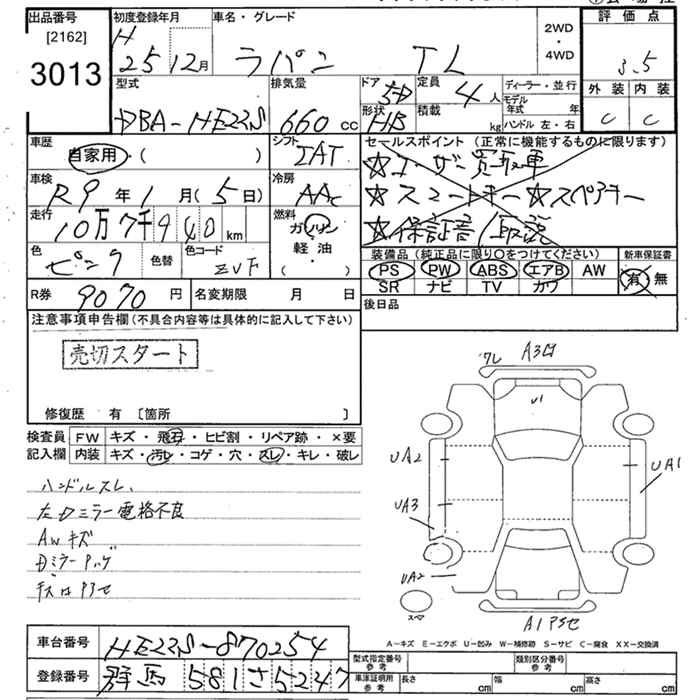 出品番号
[2162]
3013
初度登録年月
H
25 12月
車名・グレード
ラパン TL
2WD
・
4WD
評価点
3.5
外装 内装
C C
型式
DBA-HE22S
排気量
660 cc
ドア
5D
形状
HB
定員
4人
積載
kg
ディーラー・並行
モデル年式 年
ハンドル 左・右
車歴
自家用・( )
シフト
IAT
車検
R9年1月(5日)
冷房
AAC
走行
10万7千940km
燃料
ガソリン
軽油・
( )
色
ピンク
色替
色コード
ZVF
R券
9070円
名変期限 月 日
セールスポイント (正常に機能するものに限ります)
☆ユーザー買取車
☆スマートキー☆スペアキー
☆保証書/取説
装備品 (純正品に限り○をつけてください)
PS PW ABS エアB AW
SR ナビ TV カワ
新車保証書
有 無
後日品
注意事項申告欄(不具合内容等は具体的に記入して下さい)
売切スタート
修復歴 有 [箇所 ]
検査員記入欄
FW キズ・飛石・ヒビ割・リペア跡・×要
内装 キズ・汚レ・コゲ・穴・スレ・キレ・破レ
ハンドルスレ、
左Dミラー電格不良
AWキズ
ワレ A3凹
U1
UA2
UA1
UA3
UA2
スペア
A1アセ
A-キズ E-エクボ U-凹み W-補修跡 S-サビ C-腐食 XX-交換済
車台番号
HE22S-870254
登録番号
群馬 581 さ 5247
型式指定番号
参考
類別区分番号
参考
車庫証明用
参考
長さ cm
幅 cm
高さ cm